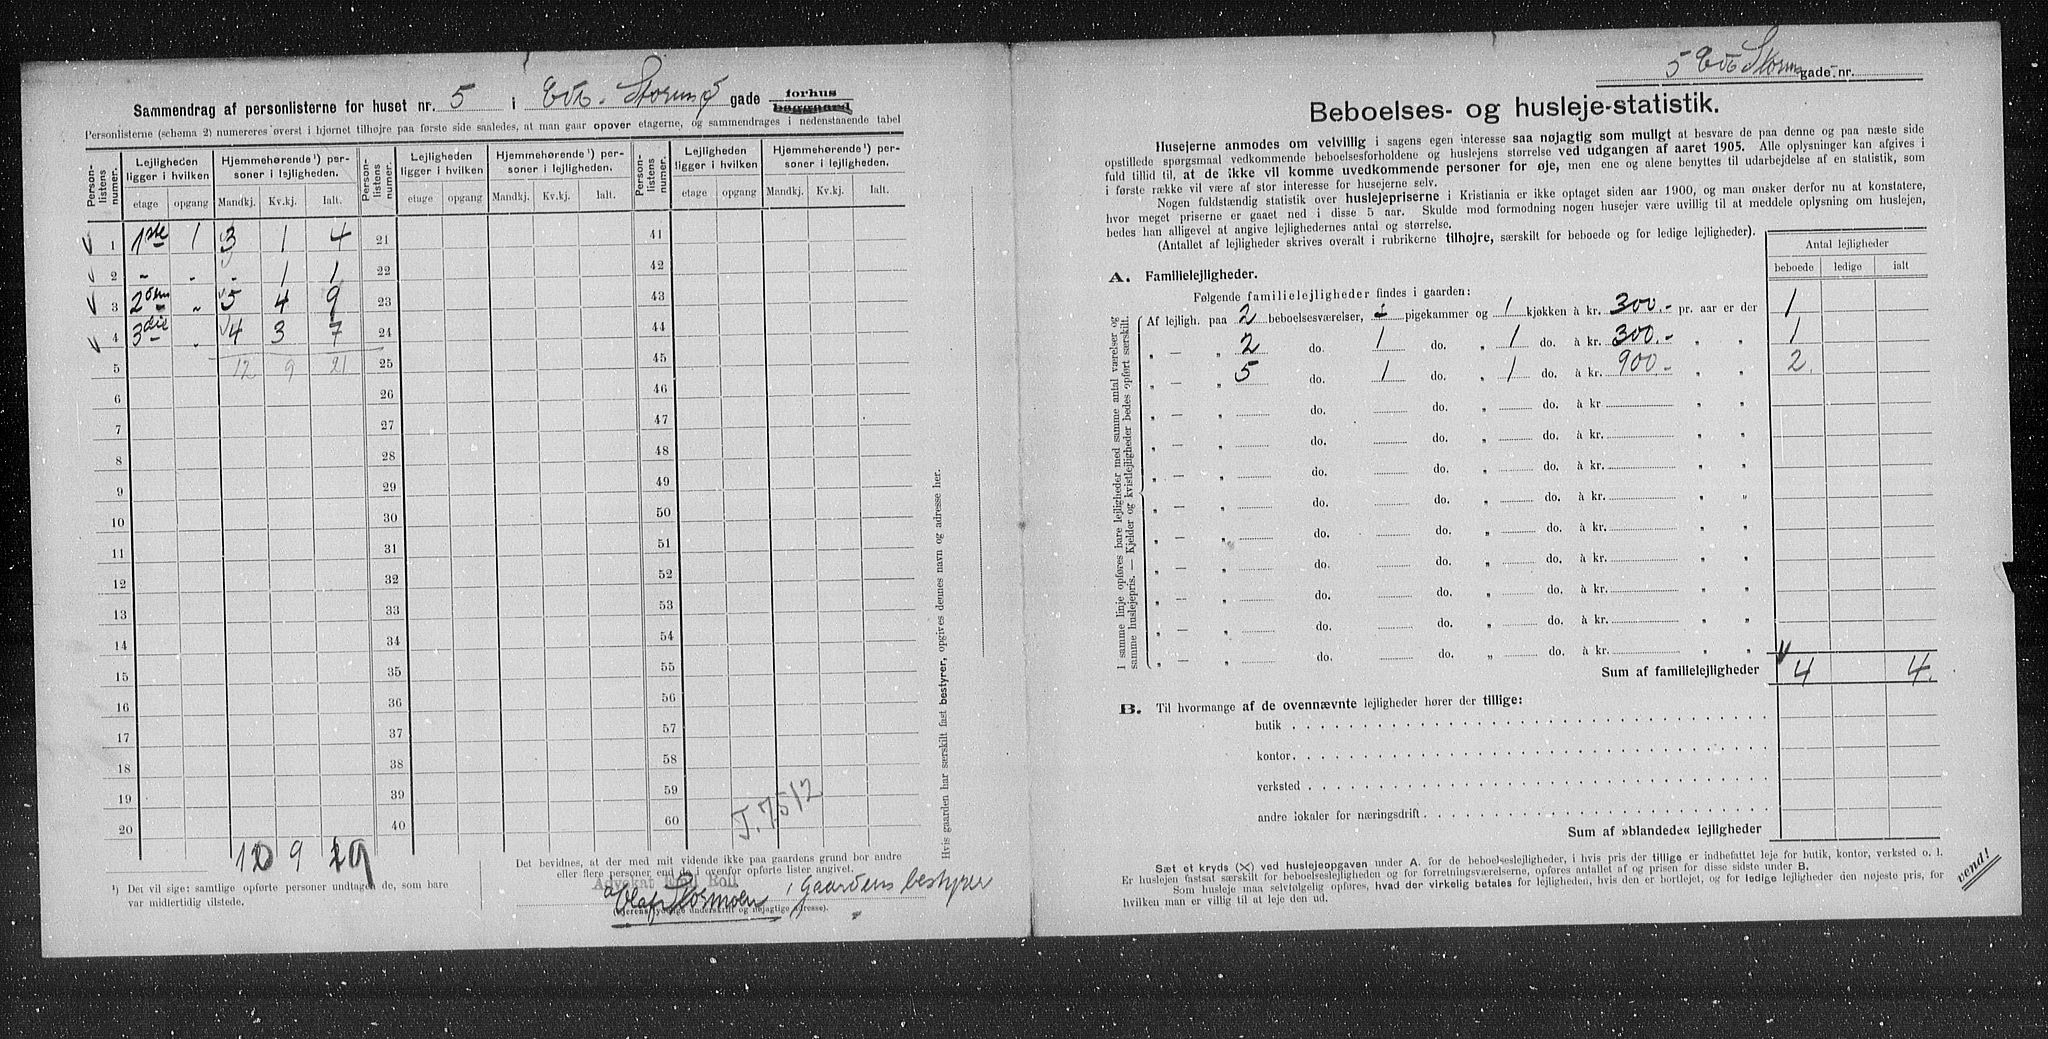 Sammendrag af personlisterne for huset nr. 5 i gade forhus baggaard
Personlisterne (schema 2) numereres øverst i hjørnet tilhøjre paa første side saaledes, at man gaar opover etagerne, og sammendrages i nedenstaaende tabel
Person-listens numer. Lejligheden ligger i hvilken Hjemmehørende¹) personer i lejligheden. Person-listens numer. Lejligheden ligger i hvilken Hjemmehørende¹) personer i lejligheden. Person-listens numer. Lejligheden ligger i hvilken Hjemmehørende¹) personer i lejligheden.
etage opgang Mandkj. Kv.kj. Ialt. etage opgang Mandkj. Kv.kj. Ialt. etage opgang Mandkj. Kv.kj. Ialt.
1 1ste 1 3 1 4 21 41
2 - - - 1 1 22 42
3 2den „ 5 4 9 23 43
4 3die „ 4 3 7 24 44
5 12 9 21 25 45
6 26 46
7 27 47
8 28 48
9 29 49
10 30 50
11 31 51
12 32 52
13 33 53
14 34 54
15 35 55
16 36 56
17 37 57
18 38 58
19 39 59
20 40 60
J. 7512
9
¹) Det vil sige: samtlige opførte personer undtagen de, som bare
var midlertidig tilstede.
Det bevidnes, at der med mit vidende ikke paa gaardens grund bor andre
eller flere personer end de i ovenfor opførte lister angivet.
Advokat Boll
Olaf Stormoen, Gaardens bestyrer
(Ejerens tydelige underskrift og nøjagtige adresse).
Hvis gaarden har særskilt fast bestyrer, opgives dennes navn og adresse her.
5 gade nr.
Beboelses- og husleje-statistik.
Husejerne anmodes om velvillig i sagens egen interesse saa nøjagtig som muligt at besvare de paa denne og paa næste side
opstillede spørgsmaal vedkommende beboelsesforholdene og huslejens størrelse ved udgangen af aaret 1905. Alle oplysninger kan afgives i
fuld tillid til, at de ikke vil komme uvedkommende personer for øje, men ene og alene benyttes til udarbejdelse af en statistik, som
i første række vil være af stor interesse for husejerne selv.
Nogen fuldstændig statistik over huslejepriserne i Kristiania er ikke optaget siden aar 1900, og man ønsker derfor nu at konstatere,
hvor meget priserne er gaaet ned i disse 5 aar. Skulde mod formodning nogen husejer være uvillig til at meddele oplysning om huslejen,
bedes han alligevel at angive lejlighedernes antal og størrelse.
(Antallet af lejligheder skrives overalt i rubrikerne tilhøjre, særskilt for beboede og for ledige lejligheder).
Antal lejligheder
beboede ledige ialt
A. Familielejligheder.
Følgende familielejligheder findes i gaarden:
Af lejligh. paa 2 beboelsesværelser, pigekammer og 1 kjøkken à kr. 300.- pr. aar er der 1
„ — „ 2 do. 1 do. „ 1 do. à kr. 300.- „ „ 1
„ — „ 5 do. 1 do. „ 1 do. à kr. 900.- „ „ 2.
„ — „ do. do. „ do. à kr. „ „
„ — „ do. do. „ do. à kr. „ „
„ — „ do. do. „ do. à kr. „ „
„ — „ do. do. „ do. à kr. „ „
„ — „ do. do. „ do. à kr. „ „
„ — „ do. do. „ do. à kr. „ „
„ — „ do. do. „ do. à kr. „ „
„ — „ do. do. „ do. à kr. „ „
„ — „ do. do. „ do. à kr. „ „
I samme linje opføres bare lejligheder med samme antal værelser og
samme huslejepris. — Kjelder og kvistlejligheder bedes opført særskilt.
Sum af familielejligheder 4 4.
B. Til hvormange af de ovennævnte lejligheder hører der tillige:
butik
kontor
verksted
andre lokaler for næringsdrift
Sum af »blandede« lejligheder
Sæt et kryds (X) ved huslejeopgaven under A. for de beboelseslejligheder, i hvis pris der tillige er indbefattet leje for butik, kontor, verksted o. l.
Er huslejen fastsat særskilt for beboelseslejligheden og for forretningsværelserne, opføres antallet af og prisen for disse sidste under B.
Som husleje maa selvfølgelig opføres, hvad der virkelig betales for lejligheden, hvis den er bortlejet, og for ledige lejligheder den nøjeste pris, for
hvilken man er villig til at leje den ud.
vend!